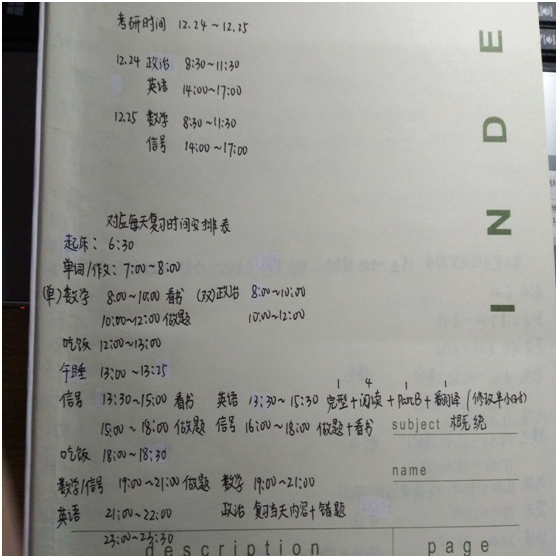 考研时间 12.24～12.25
12.24 政治 8:30～11:30
英语 14:00～17:00
12.25 数学 8:30～11:30
信号 14:00～17:00
INDE
对应每天复习时间安排表
起床： 6:30
单词/作文：7:00～8:00
(单)数学 8:00～10:00 看书 (双)政治 8:00～10:00
10:00～12:00 做题 10:00～12:00
吃饭 12:00～13:00
午睡 13:00～13:25
1 4 1 1
信号 13:30～15:00 看书 英语 13:30～15:30 完型+阅读+PartB+翻译(修改半小时)
15:00～18:00 做题 信号 16:00～18:00 做题+看书
subject 概统
吃饭 18:00～18:30
name
数学/信号 19:00～21:00 做题 数学 19:00～21:00
英语 21:00～22:00 政治 复习当天内容+错题
23:00～23:30
description page